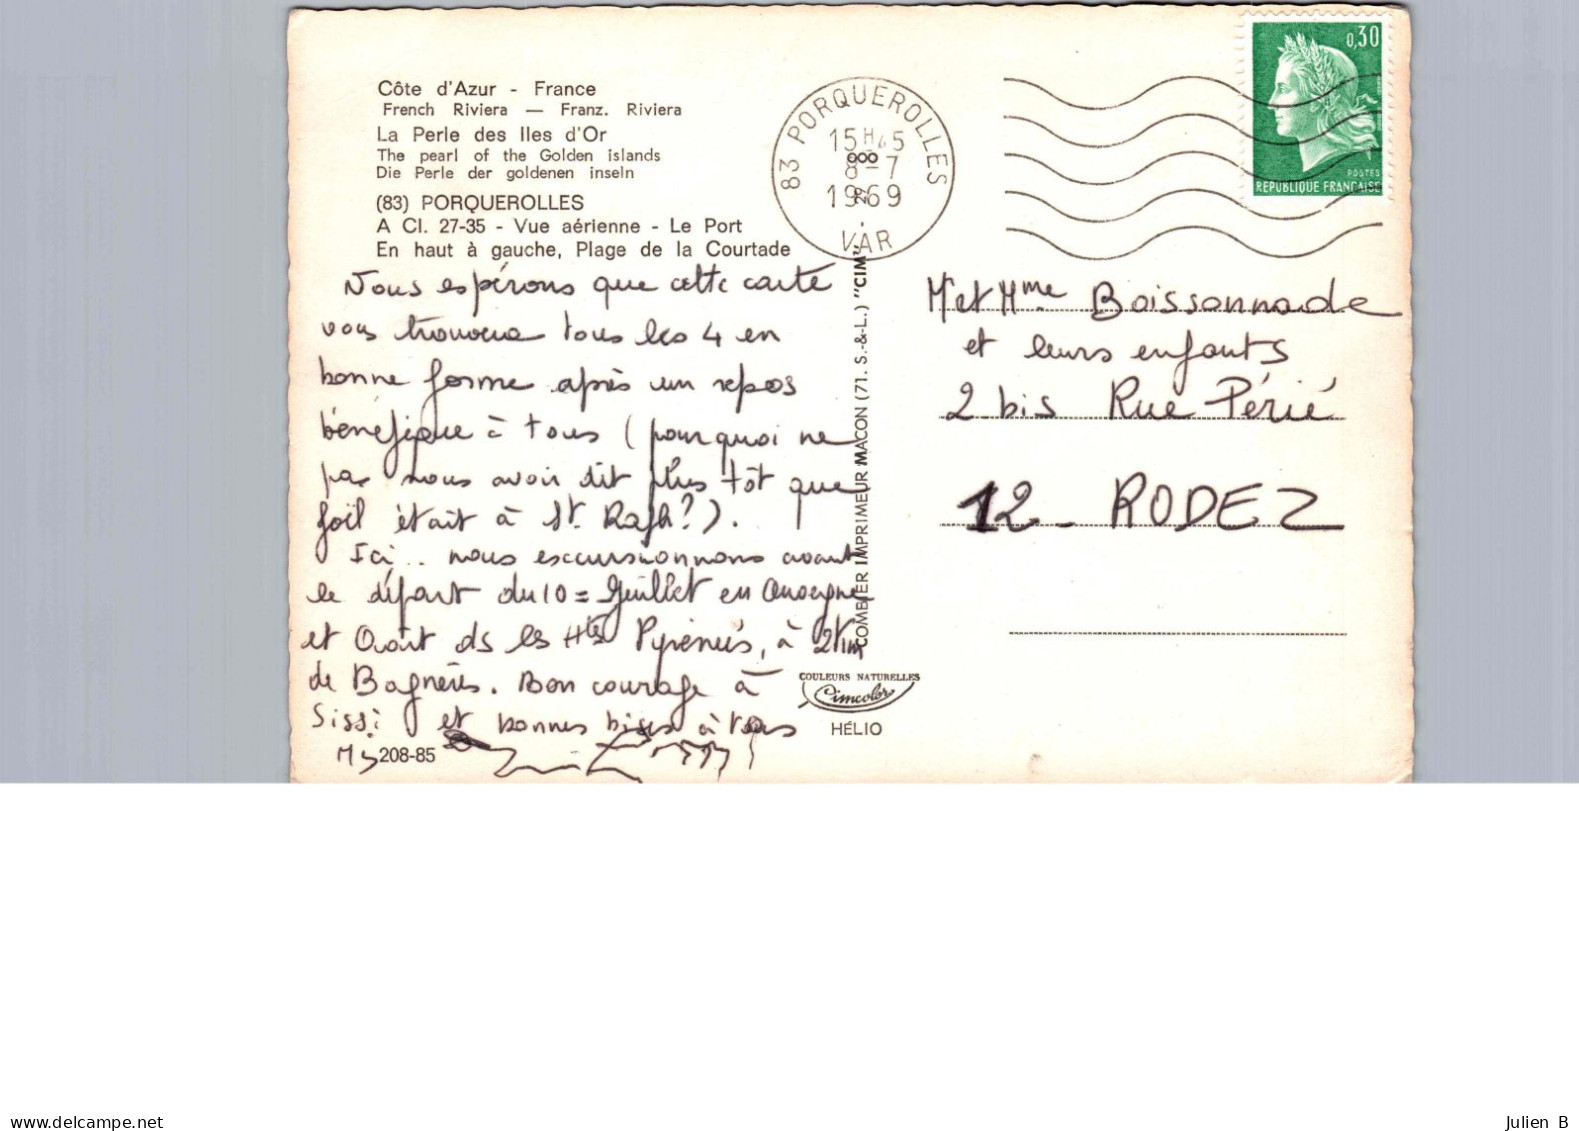 Côte d'Azur - France
French Riviera — Franz. Riviera
La Perle des Iles d'Or
The pearl of the Golden islands
Die Perle der goldenen inseln
(83) PORQUEROLLES
A Cl. 27-35 - Vue aérienne - Le Port
En haut à gauche, Plage de la Courtade
Nous espérons que cette carte
vous trouvera tous les 4 en
bonne forme après un repos
bénéfique à tous (pourquoi ne
pas nous avoir dit plus tôt que
Joël était à St Raph?).
Ici.. nous excursionnons avant
le départ du 10 = Juillet en Auvergne
et Août ds les Htes Pyrénées, à 2 Km
de Bagnères. Bon courage à
Sissi et bonnes bises à tous
208-85
83 PORQUEROLLES
15H45
8-7
1969
VAR
COMBIER IMPRIMEUR MACON (71. S.-&-L.) "CIM"
COULEURS NATURELLES
Cimcolor
HÉLIO
0,30
POSTES
REPUBLIQUE FRANÇAISE
Mr et Mme Boissonnade
et leurs enfants
2 bis Rue Périé
12 - RODEZ
www.delcampe.net
Julien B